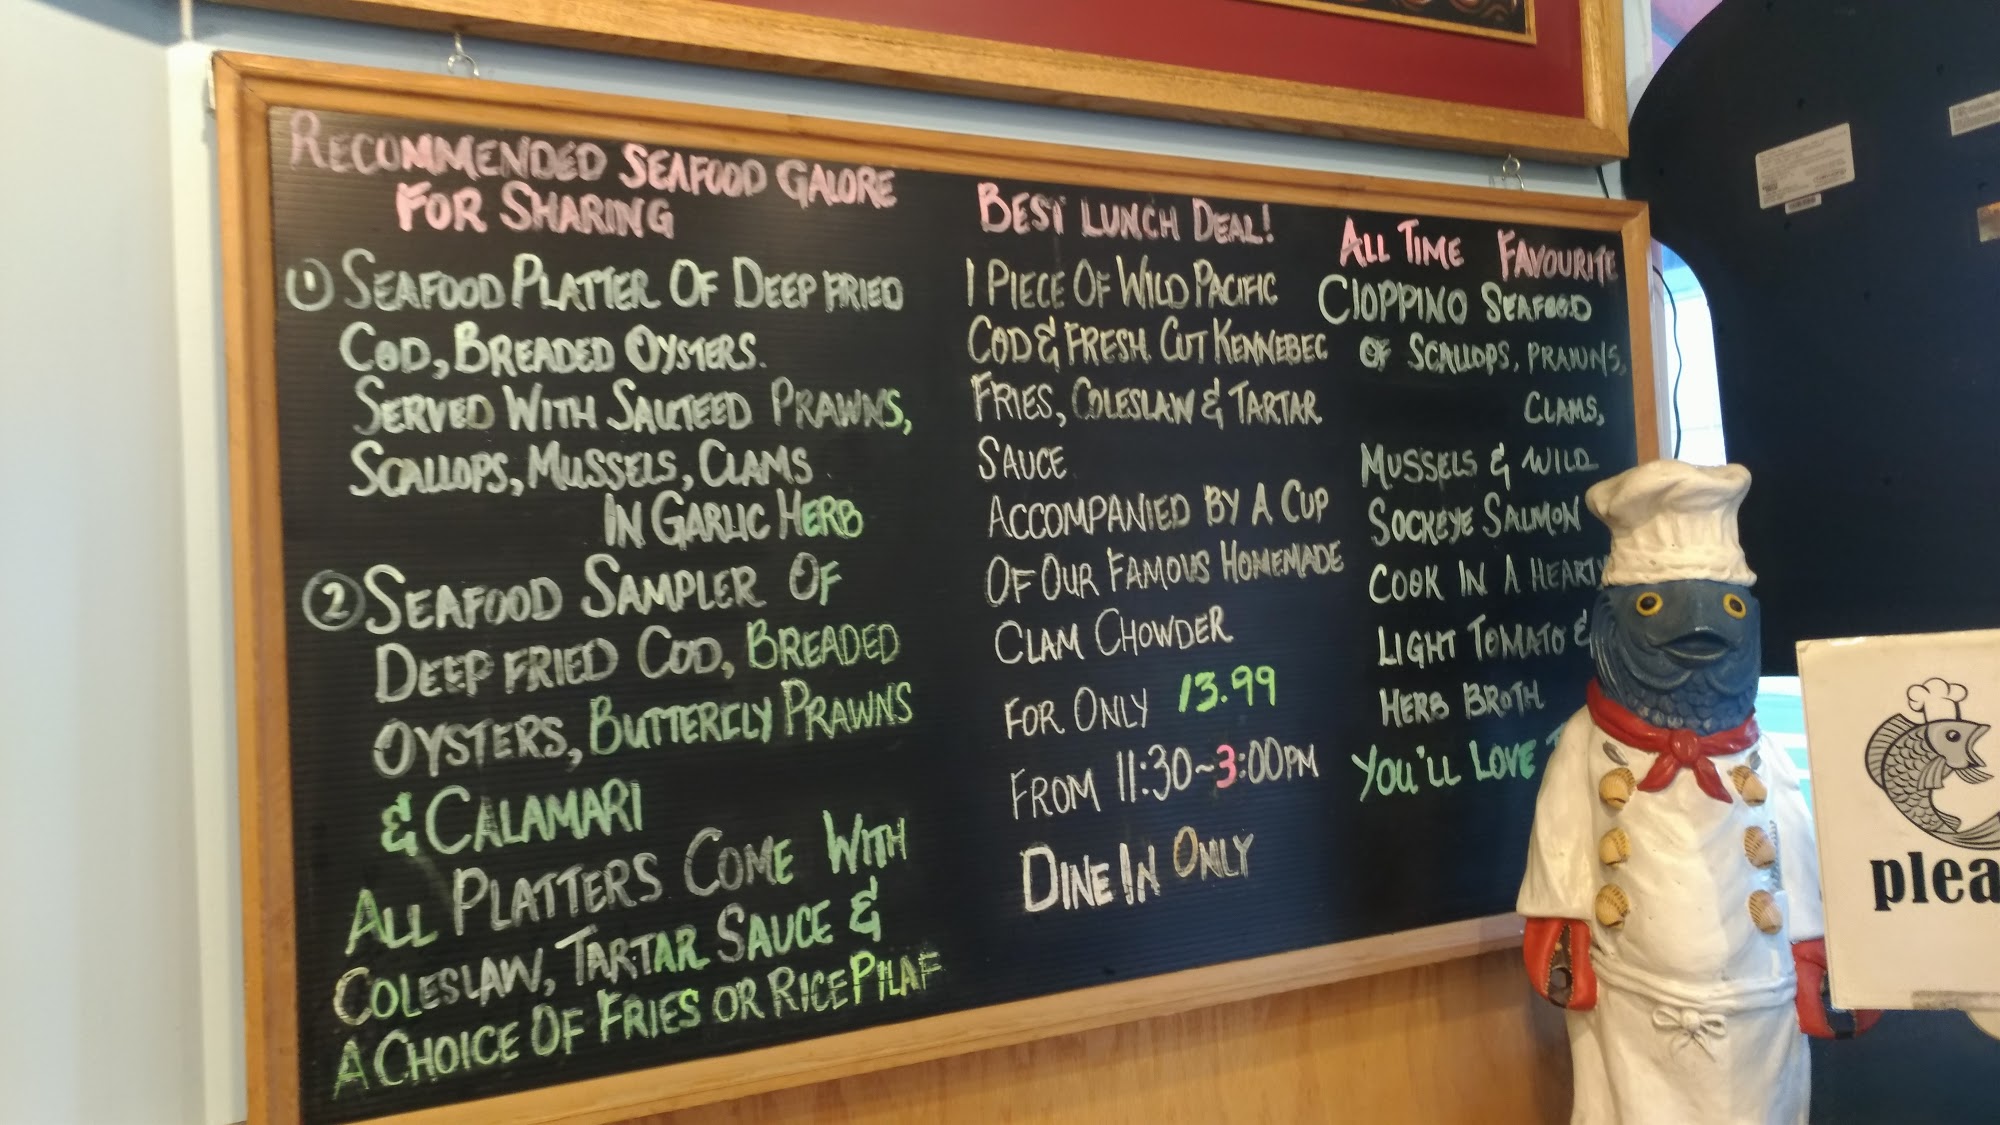 RECOMMENDED SEAFOOD GALORE
FOR SHARING
1 SEAFOOD PLATTER OF DEEP FRIED
COD, BREADED OYSTERS.
SERVED WITH SAUTEED PRAWNS,
SCALLOPS, MUSSELS, CLAMS
IN GARLIC HERB
2 SEAFOOD SAMPLER OF
DEEP FRIED COD, BREADED
OYSTERS, BUTTERFLY PRAWNS
& CALAMARI
ALL PLATTERS COME WITH
COLESLAW, TARTAR SAUCE &
A CHOICE OF FRIES OR RICE PILAF
BEST LUNCH DEAL!
1 PIECE OF WILD PACIFIC
COD & FRESH CUT KENNEBEC
FRIES, COLESLAW & TARTAR
SAUCE
ACCOMPANIED BY A CUP
OF OUR FAMOUS HOMEMADE
CLAM CHOWDER
FOR ONLY 13.99
FROM 11:30~3:00PM
DINE IN ONLY
ALL TIME FAVOURITE
CIOPPINO SEAFOOD
OF SCALLOPS, PRAWNS,
CLAMS,
MUSSELS & WILD
SOCKEYE SALMON
COOK IN A HEARTY
LIGHT TOMATO &
HERB BROTH
YOU'LL LOVE
plea